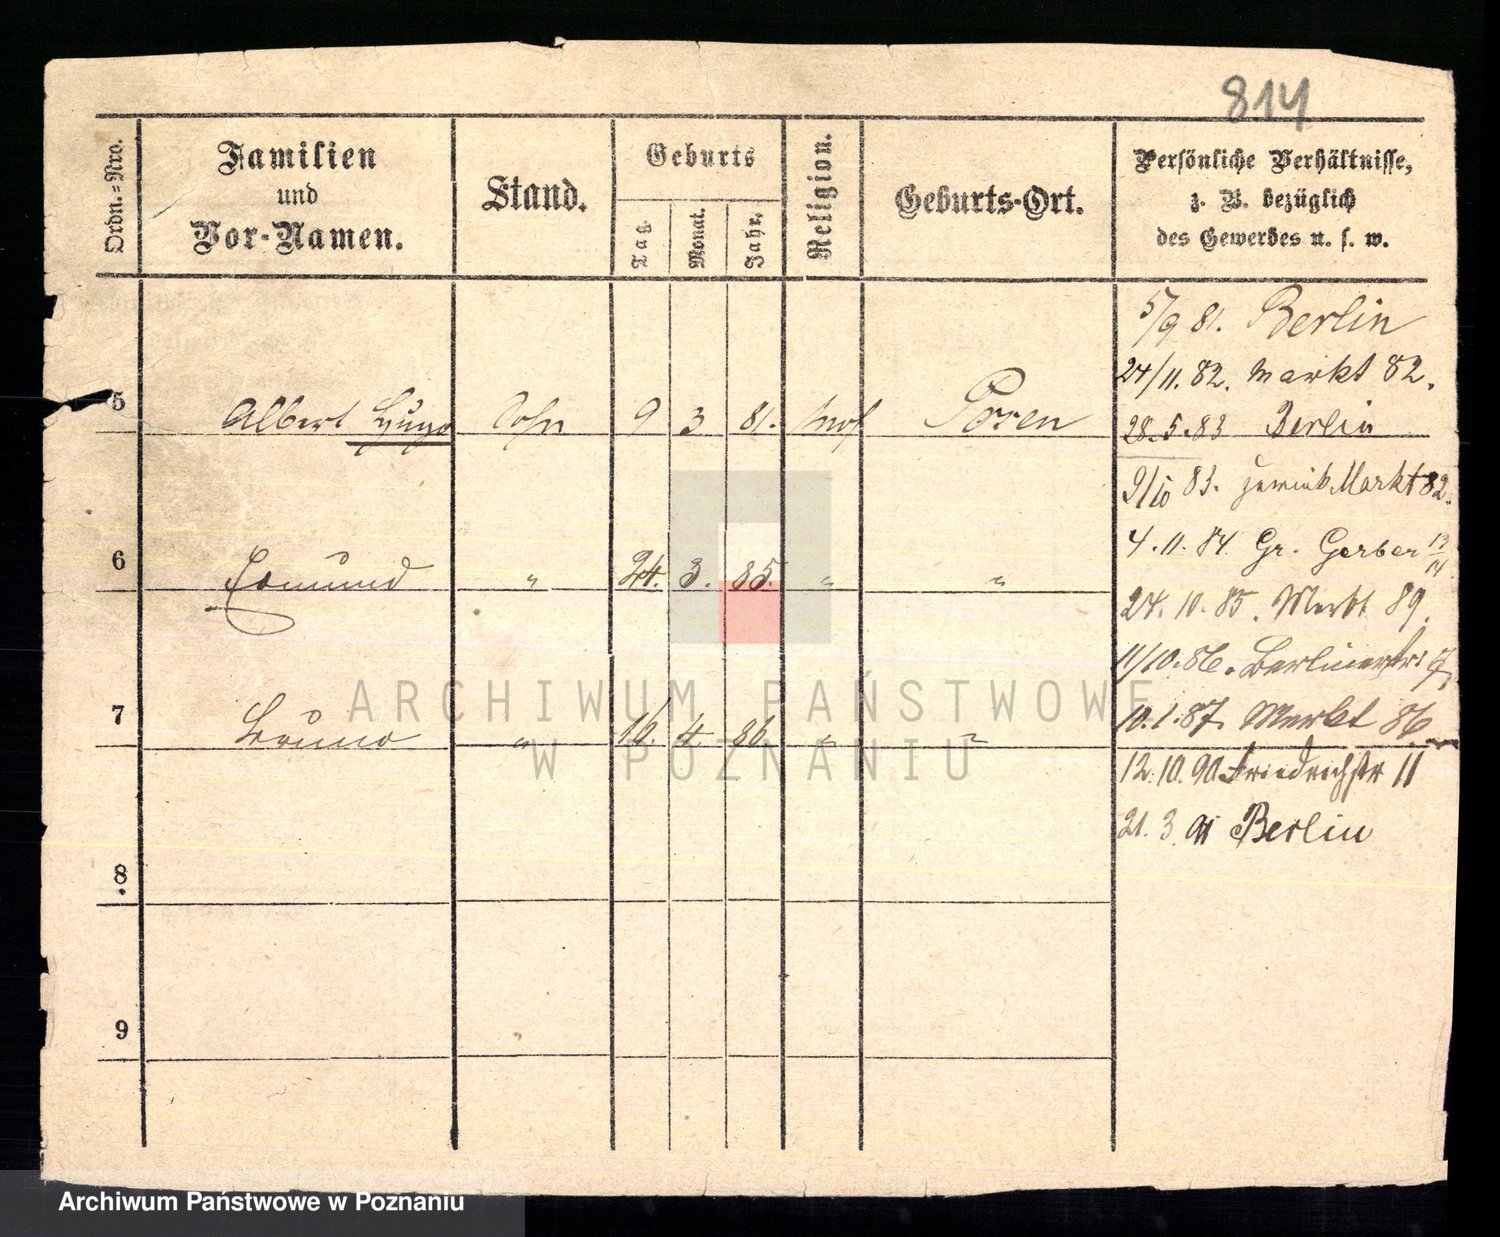 814
Ordn.-Nro.
Familien
und
Vor-Namen.
Stand.
Geburts
Tag.
Monat.
Jahr.
Religion.
Geburts-Ort.
Persönliche Verhältnisse,
z. B. bezüglich
des Gewerbes u. s. w.
5/9 81. Berlin
24/11. 82. Markt 82.
5 Albert Hugo Sohn 9 3 81. mos Posen
28.5.83 Berlin
9/10 83. zurück Markt 82.
4.11.84. Gr. Gerber 13/14
6 Edmund " 24. 3. 85. " "
24.10.85. Markt 89.
11/10.86. Berlinerstr
7 Bruno " 16. 4 86 " "
10.1.87. Markt 86.
12.10.90 Friedrichstr 11
21.3 91 Berlin
8
9
ARCHIWUM PAŃSTWOWE
W POZNANIU
Archiwum Państwowe w Poznaniu